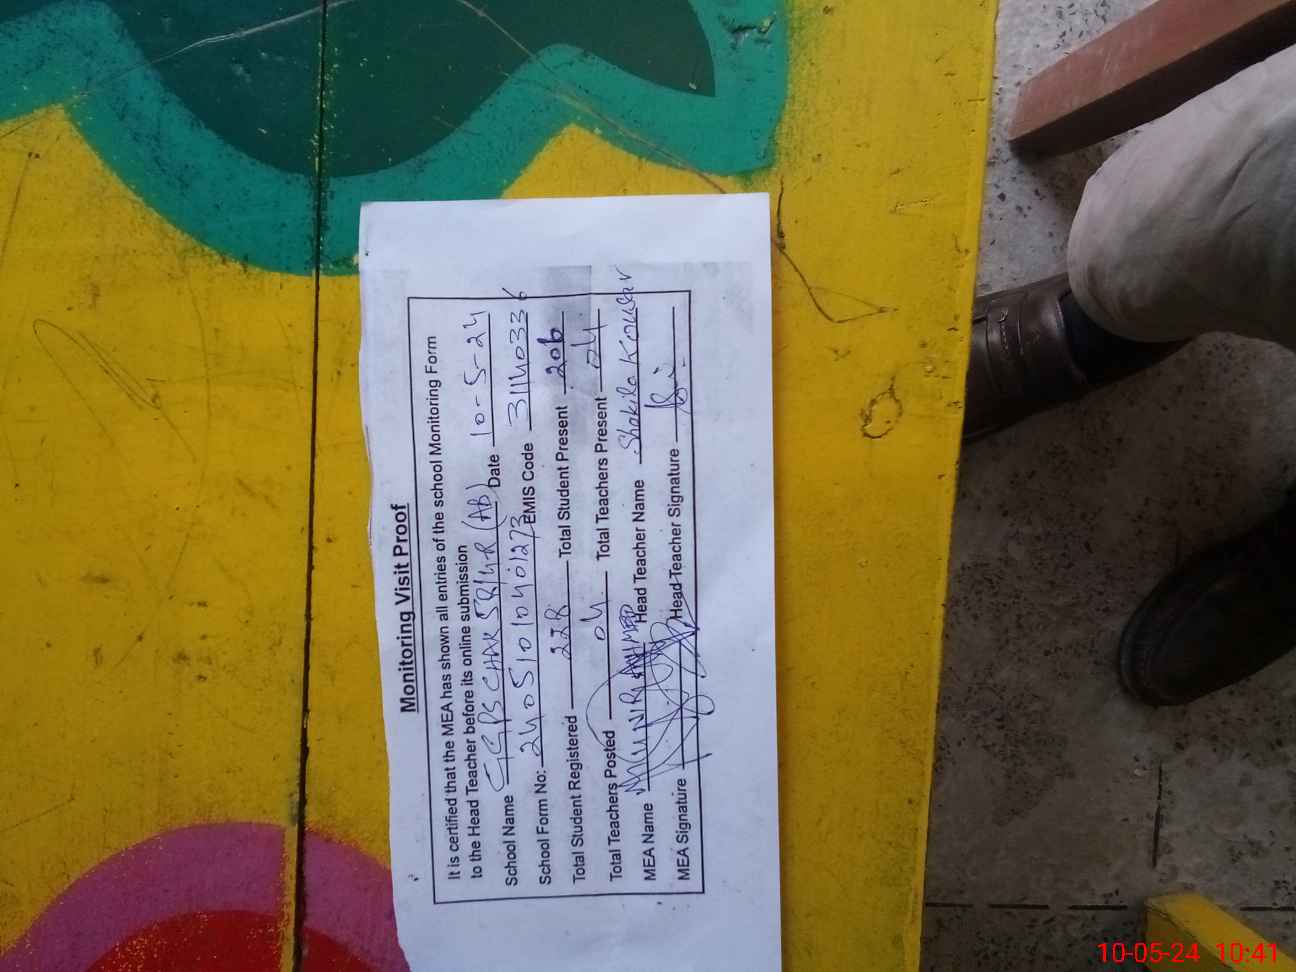 Monitoring Visit Proof
It is certified that the MEA has shown all entries of the school Monitoring Form
to the Head Teacher before its online submission
School Name GGPS CHAK 5R/4-R (AB) Date 10-5-24
School Form No: 24051010401273 EMIS Code 31140336
Total Student Registered 228 Total Student Present 206
Total Teachers Posted 04 Total Teachers Present 04
MEA Name MUNIR AHMED Head Teacher Name Shakila Kousar
MEA Signature Head Teacher Signature
10-05-24 10:41